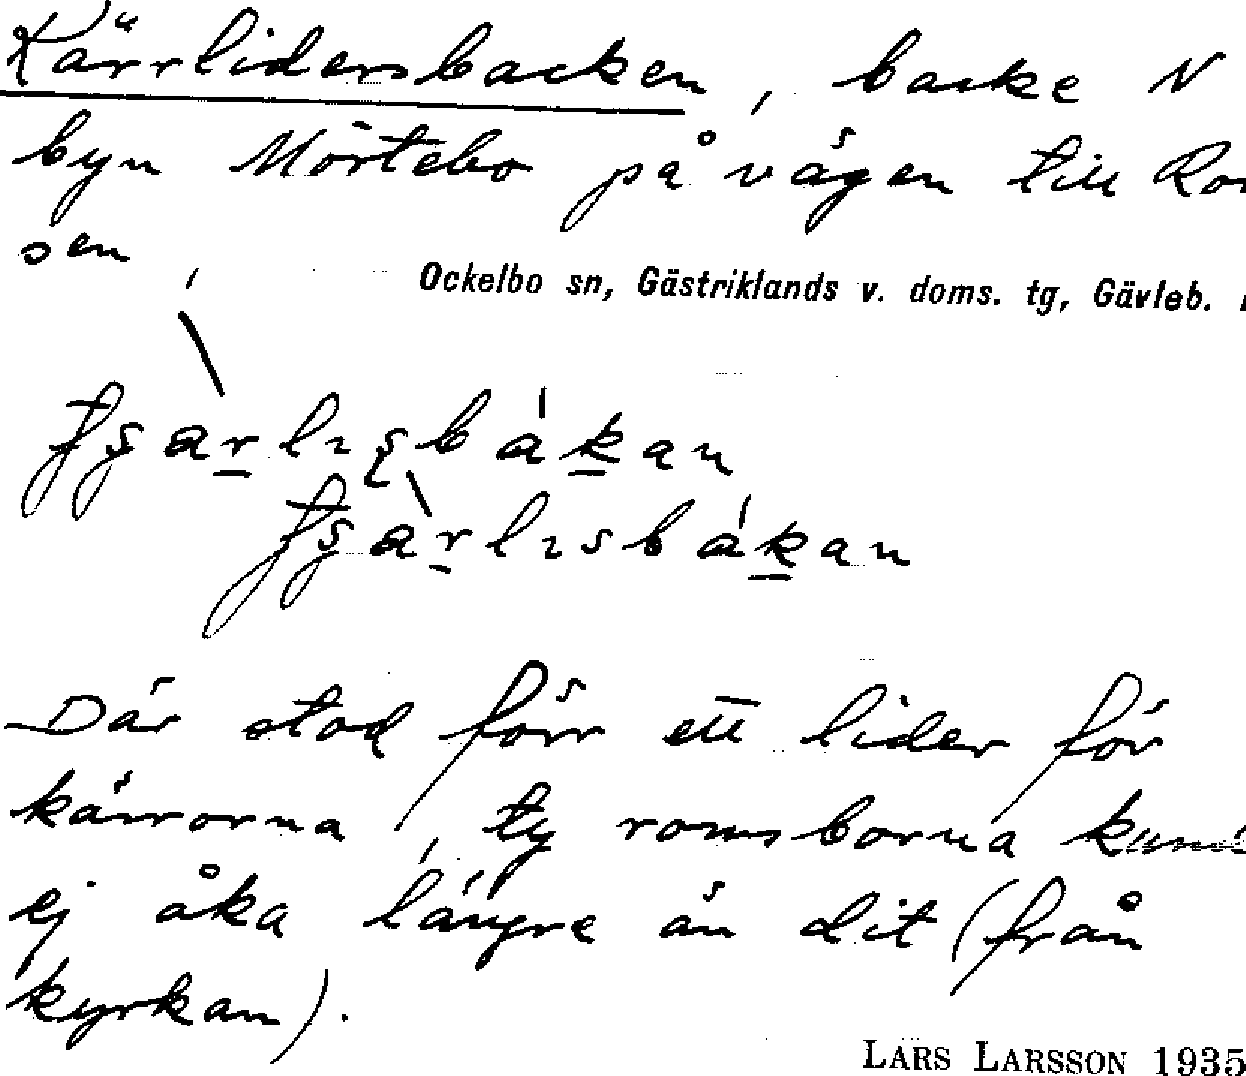 Kärrlidersbacken, backe N
byn Mörtebo på vägen till Rom
sen,
Ockelbo sn, Gästriklands v. doms. tg, Gävleb.
Där stod förr ett lider för
kärrorna, ty romsborna kund
ej åka längre än dit (från
kyrkan).
LARS LARSSON 1935